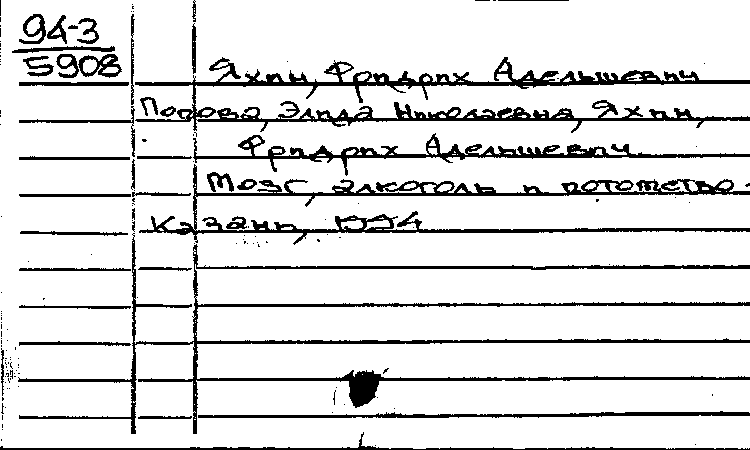 94-3
5908
Яхин, Фридрих Адельшевич
Попова, Элида Николаевна, Яхин,
Фридрих Адельшевич
Мозг, алкоголь и потомство.
Казань, 1994